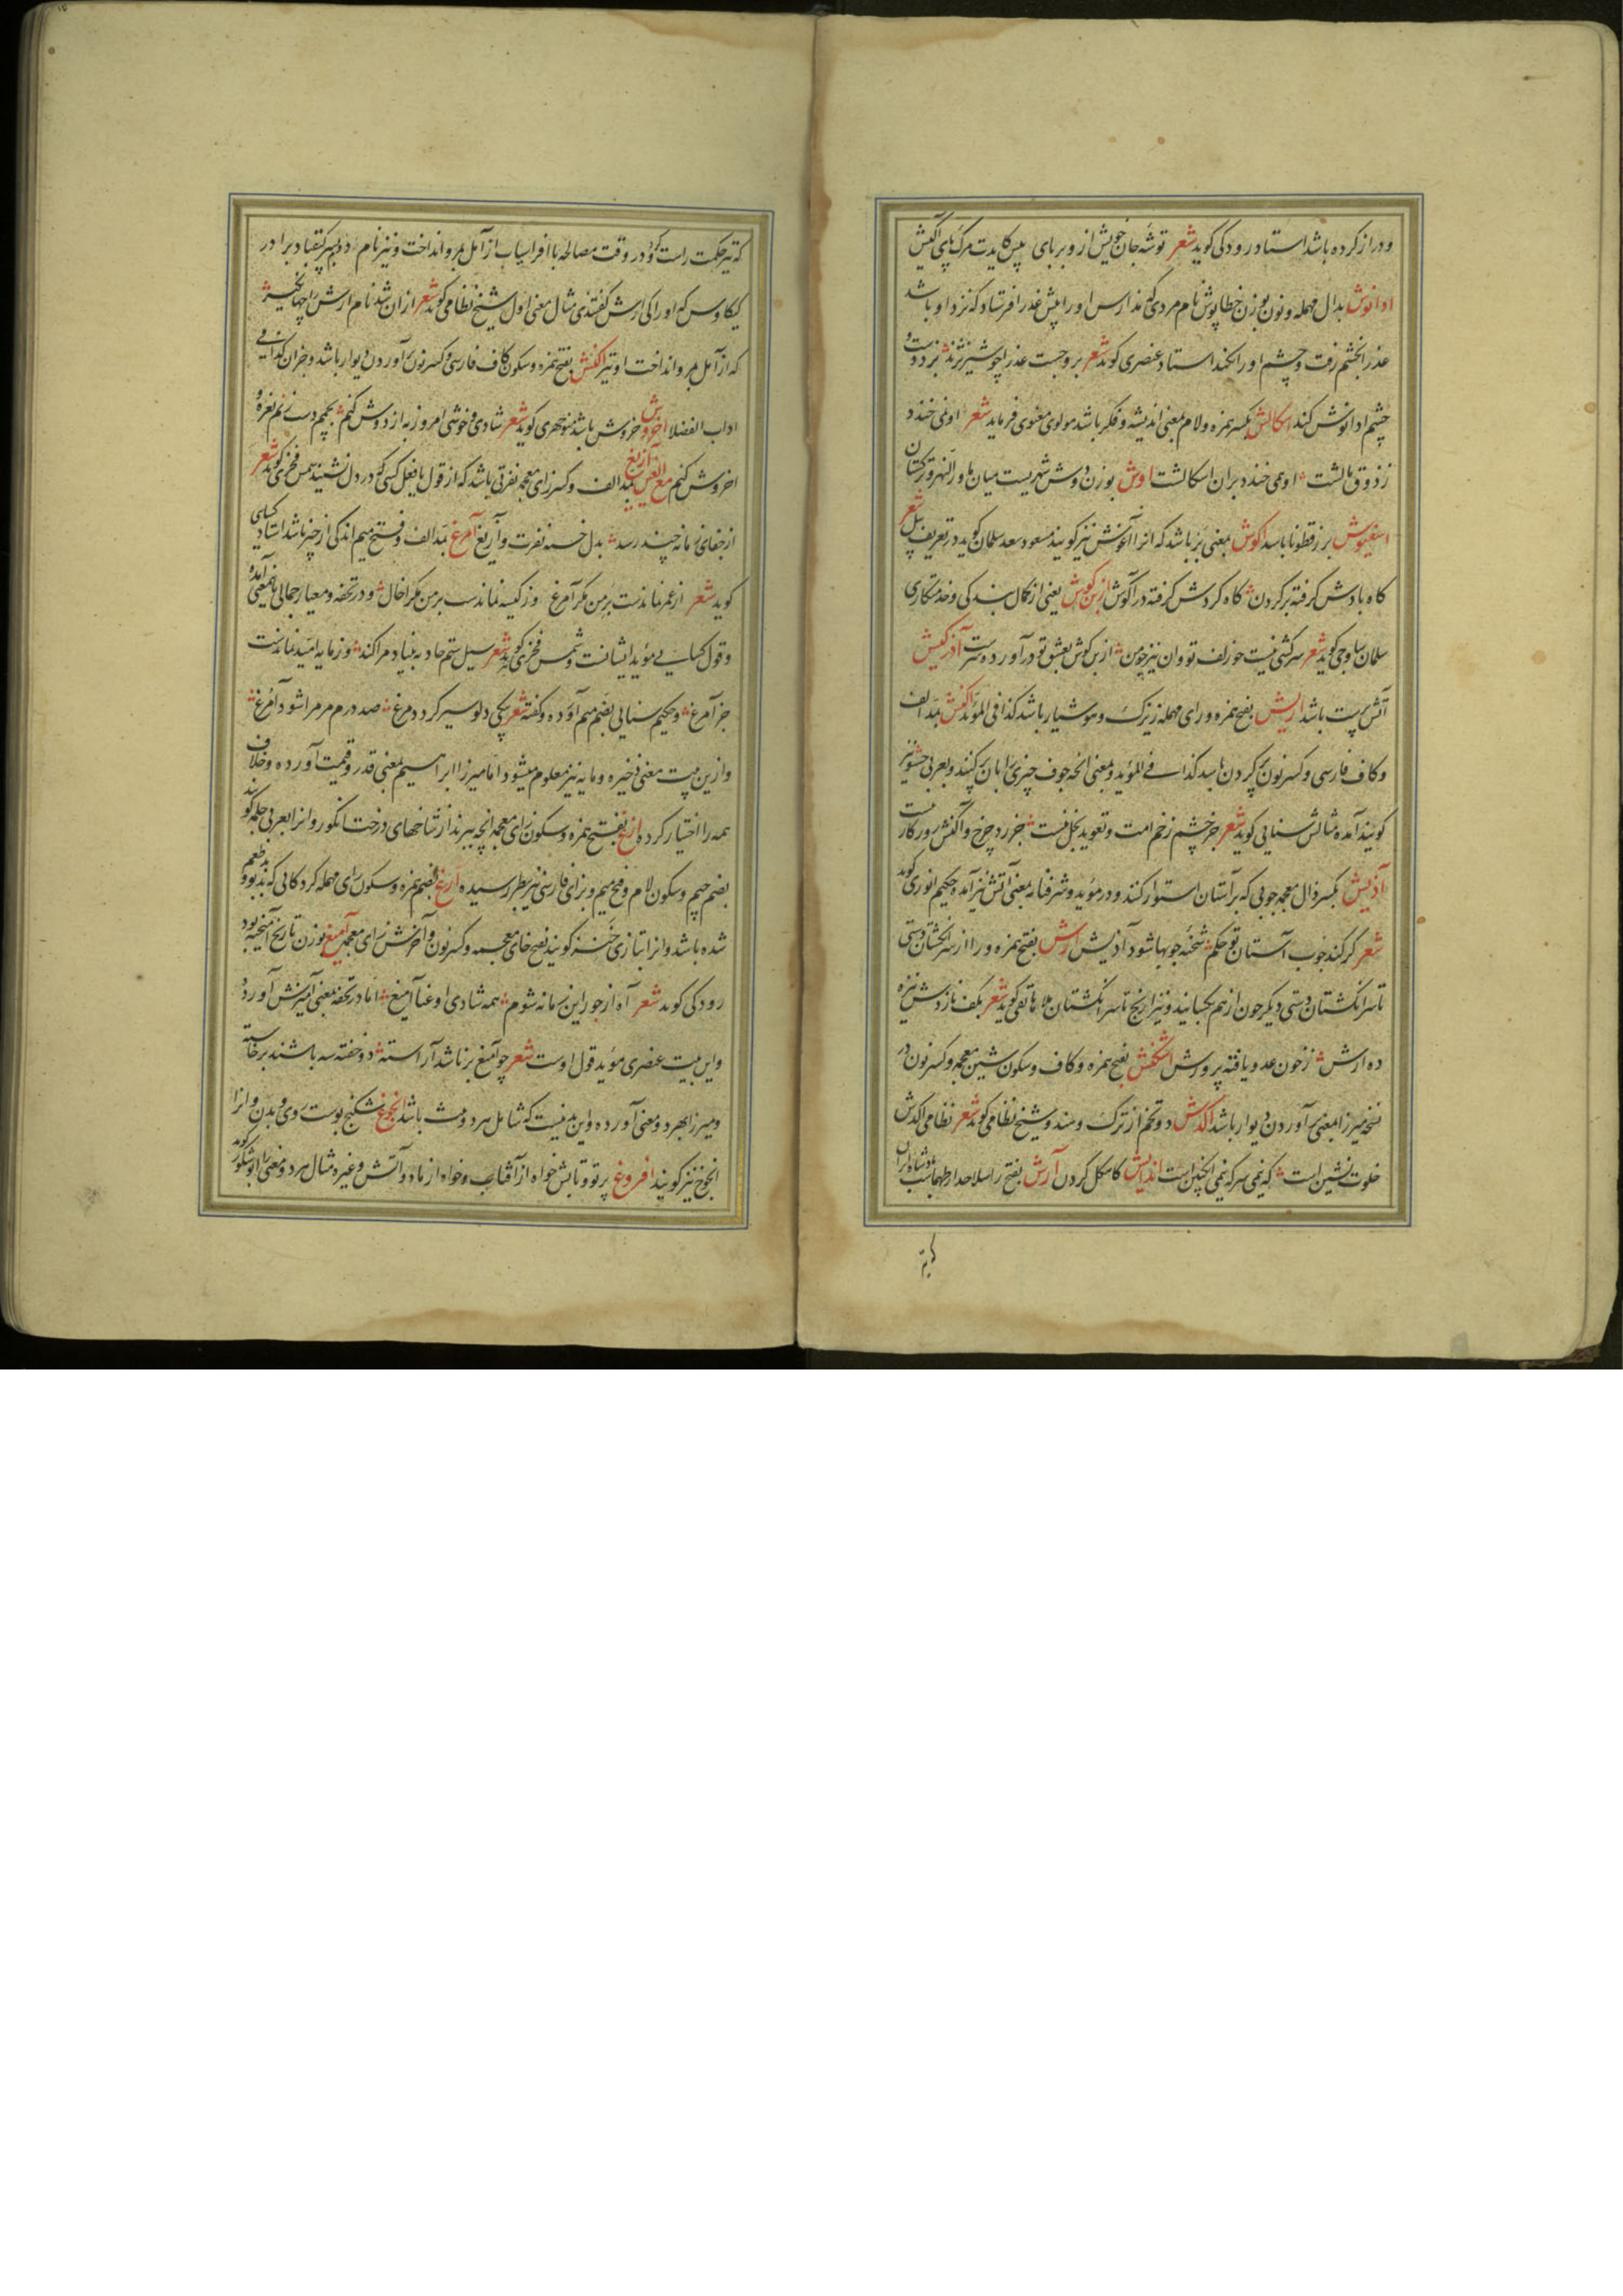 ودراز کرده باشد استاد رودکی کوید شعر توشه جان خویش ازو بربای پیش کایدت مرک پای آکیش
ادانوش بدال مهمله ونون بوزن خطاپوش نام مردی که منذارس اورا پیش عذرا فرستاد که نزد او باشد
عذرا بخشم رفت وچشم اورا بکند استاد عنصری کوید شعر بر وجست عذرا چو شیر نژند بزد دست و
چشم ادانوش کند اسکالش بکسر همزه ولام بمعنی اندیشه وفکر باشد مولوی معنوی فرماید شعر او نمی خندد
ز ذوق مالشت او همی خندد بران اسکالشت اوش بوزن دوش شهریست میان ماوراالنهر وترکستان
اسغیوش بزرقطونا باشد آکوش بمعنی بر باشد که انرا آغوش نیز کویند مسعود سعد سلمان کوید در تعریف پیل شعر
کاه بادش کرفته بر کردن کاه کردش کرفته در آکوش ازبن کوش یعنی از کمال بندکی وخدمتکاری
سلمان ساوجی کوید شعر سرکشی نیست جو زلف تو وان نیز چو من ازبن کوش بعشق تو درآورده سرست آذرکیش
آتش پرست باشد اریش بفتح همزه ورای مهمله زیرک وهوشیار باشد کذا فی المؤید آکنش بمد الف
وکاف فارسی وکسر نون پر کردن باشد کذا فی المؤید ومعنی انچه جوف چیزی را بان پر کنند وبعربی حشو نیز
کویند آمده مثالش سنایی کوید شعر جز چشم زخم امت وتعوید بخل نیست جز رد چرخ وآکنش روزکار نیست
آذیش بکسر ذال معجمه چوبی که بر آستان استوار کنند ودر مؤید وشرفنامه بمعنی آتش نیز آمده حکیم انوری کوید
شعر کر کند چوب آستان تو حکم شحنه چوبها شود آذیش ارش بفتح همزه ورا از سر انکشتان دستی
تا سر انکشتان دستی دیکر چون از هم بکشایند ونیز از آرنج تا سر انکشتان ملا هاتفی کوید شعر بکف نازدش نیزه
ده ارش ز خون عدو یافته پرورش اشکنش بفتح همزه وکاف وسکون شین معجمه وکسر نون در
نسخه میرزا بمعنی برآوردن دیوار باشد اکدش دو تخم از ترک وهند وشیخ نظامی کوید شعر نظامی اکدش
خلوت نشین است که نیمی سرکه نیمی انکبین است اندایش کاهکل کردن آرش بفتح را سلاحدار طهماسب بود شاه ایران
که تیر
که تیر حکمت راست کرد ودر وقت مصالحه با افراسیاب از آمل بمرو انداخت ونیز نام دویم پسر کیقباد برادر
کیکاوس که اورا کی ارش کفتندی مثال معنی اول شیخ نظامی کوید شعر ازان شد نام ارش را جهانکیر
که از آمل بمرو انداخت او تیر اکنش بفتح همزه وسکون کاف فارسی وکسر نون برآوردن دیوار باشد وجز ان کذا فی
اداب الفضلا اخروش خروش باشد منوچهری کوید شعر شادی وخوشی امروز به از دوش کنم بچمم دست زنم نعره و
اخروش کنم مع الغین آزیغ بمد الف وکسر زای معجمه نفرتی باشد که از قول یا فعل کسی در دل نشیند شمس فخری کوید شعر
از جفای زمانه چند رسد بدل خسته نفرت وآزیغ آمرغ بمد الف وفتح میم اندکی از چیز باشد استاد کسایی
کوید شعر از عمر نماندست بر من مکر آمرغ وز کیسه نماندست بر من مکر اخال ودر تحفه ومعیار جمالی بهمین معنی آمده
وقول کسایی مؤید ایشانست وشمس فخری کوید شعر سیل ستم حادثه بنیاد مرا کند وز مایه امید نماندست
جز آمرغ وحکیم سنایی بضم میم آورده وکفته شعر یکی دلو سیر کرد دو مرغ صد درم مر مرا شود آمرغ
وازین بیت معنی ذخیره ومایه نیز معلوم میشود اما میرزا ابراهیم بمعنی قدر وقیمت آورده وخلاف
همه را اختیار کرده ازغ بفتح همزه وسکون زای معجمه انچه ببرند از شاخهای درخت انکور وانرا بعربی جلمه کویند
بضم جیم وسکون لام وفتح میم وبزای فارسی نیز بنظر رسیده ارغ بضم همزه وسکون رای مهمله کردکانی که بدبو وبدطعم
شده باشد وانرا بتازی خنز کویند بفتح خای معجمه وکسر نون وآخرش زای معجمه آمیغ بوزن تاریخ آمیخته بود
رودکی کوید شعر آه از جور این زمانه شوم همه شادی او غنا آمیغ اما در تحفه بمعنی آمیزش آورده
واین بیت عنصری مؤید قول اوست شعر چو آمیغ برنا شد آراسته دو خفته سه باشند برخاسته
ومیرزا بهر دو معنی آورده واین بد نیست که شامل هر دو هست باشد انجوغ شکنج پوست روی وبدن وانرا
انجوخ نیز کویند افروغ پرتو وتابش خواه از آفتاب وخواه از ماه وآتش وغیره مثال هر دو معنی را ابوشکور کوید